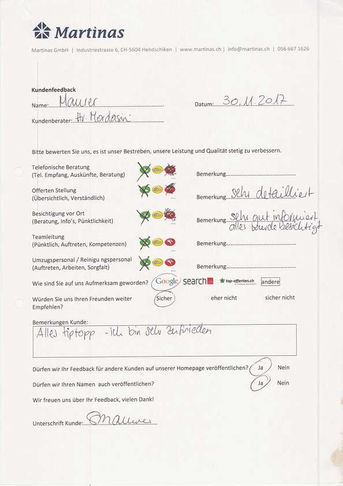 Martinas
Martinas GmbH | Industriestrasse 6, CH 5604 Hendschiken | www.martinas.ch | info@martinas.ch | 056 667 1626
Kundenfeedback
Name: Maurer Datum: 30.11.2017
Kundenberater: Hr Mardasni
Bitte bewerten Sie uns, es ist unser Bestreben, unsere Leistung und Qualität stetig zu verbessern.
Telefonische Beratung
(Tel. Empfang, Auskünfte, Beratung) Bemerkung
Offerten Stellung
(Übersichtlich, Verständlich) Bemerkung sehr detailliert
Besichtigung vor Ort
(Beratung, Info's, Pünktlichkeit) Bemerkung sehr gut informiert
alles wurde besichtigt
Teamleitung
(Pünktlich, Auftreten, Kompetenzen) Bemerkung
Umzugspersonal / Reinigungspersonal
(Auftreten, Arbeiten, Sorgfalt) Bemerkung
Wie sind Sie auf uns Aufmerksam geworden? Google search top-offerten.ch andere
Würden Sie uns Ihren Freunden weiter Sicher eher nicht sicher nicht
Empfehlen?
Bemerkungen Kunde:
Alles tiptopp - Ich bin sehr zufrieden
Dürfen wir Ihr Feedback für andere Kunden auf unserer Homepage veröffentlichen? Ja Nein
Dürfen wir Ihren Namen auch veröffentlichen? Ja Nein
Wir freuen uns über Ihr Feedback, vielen Dank!
Unterschrift Kunde: Maurer